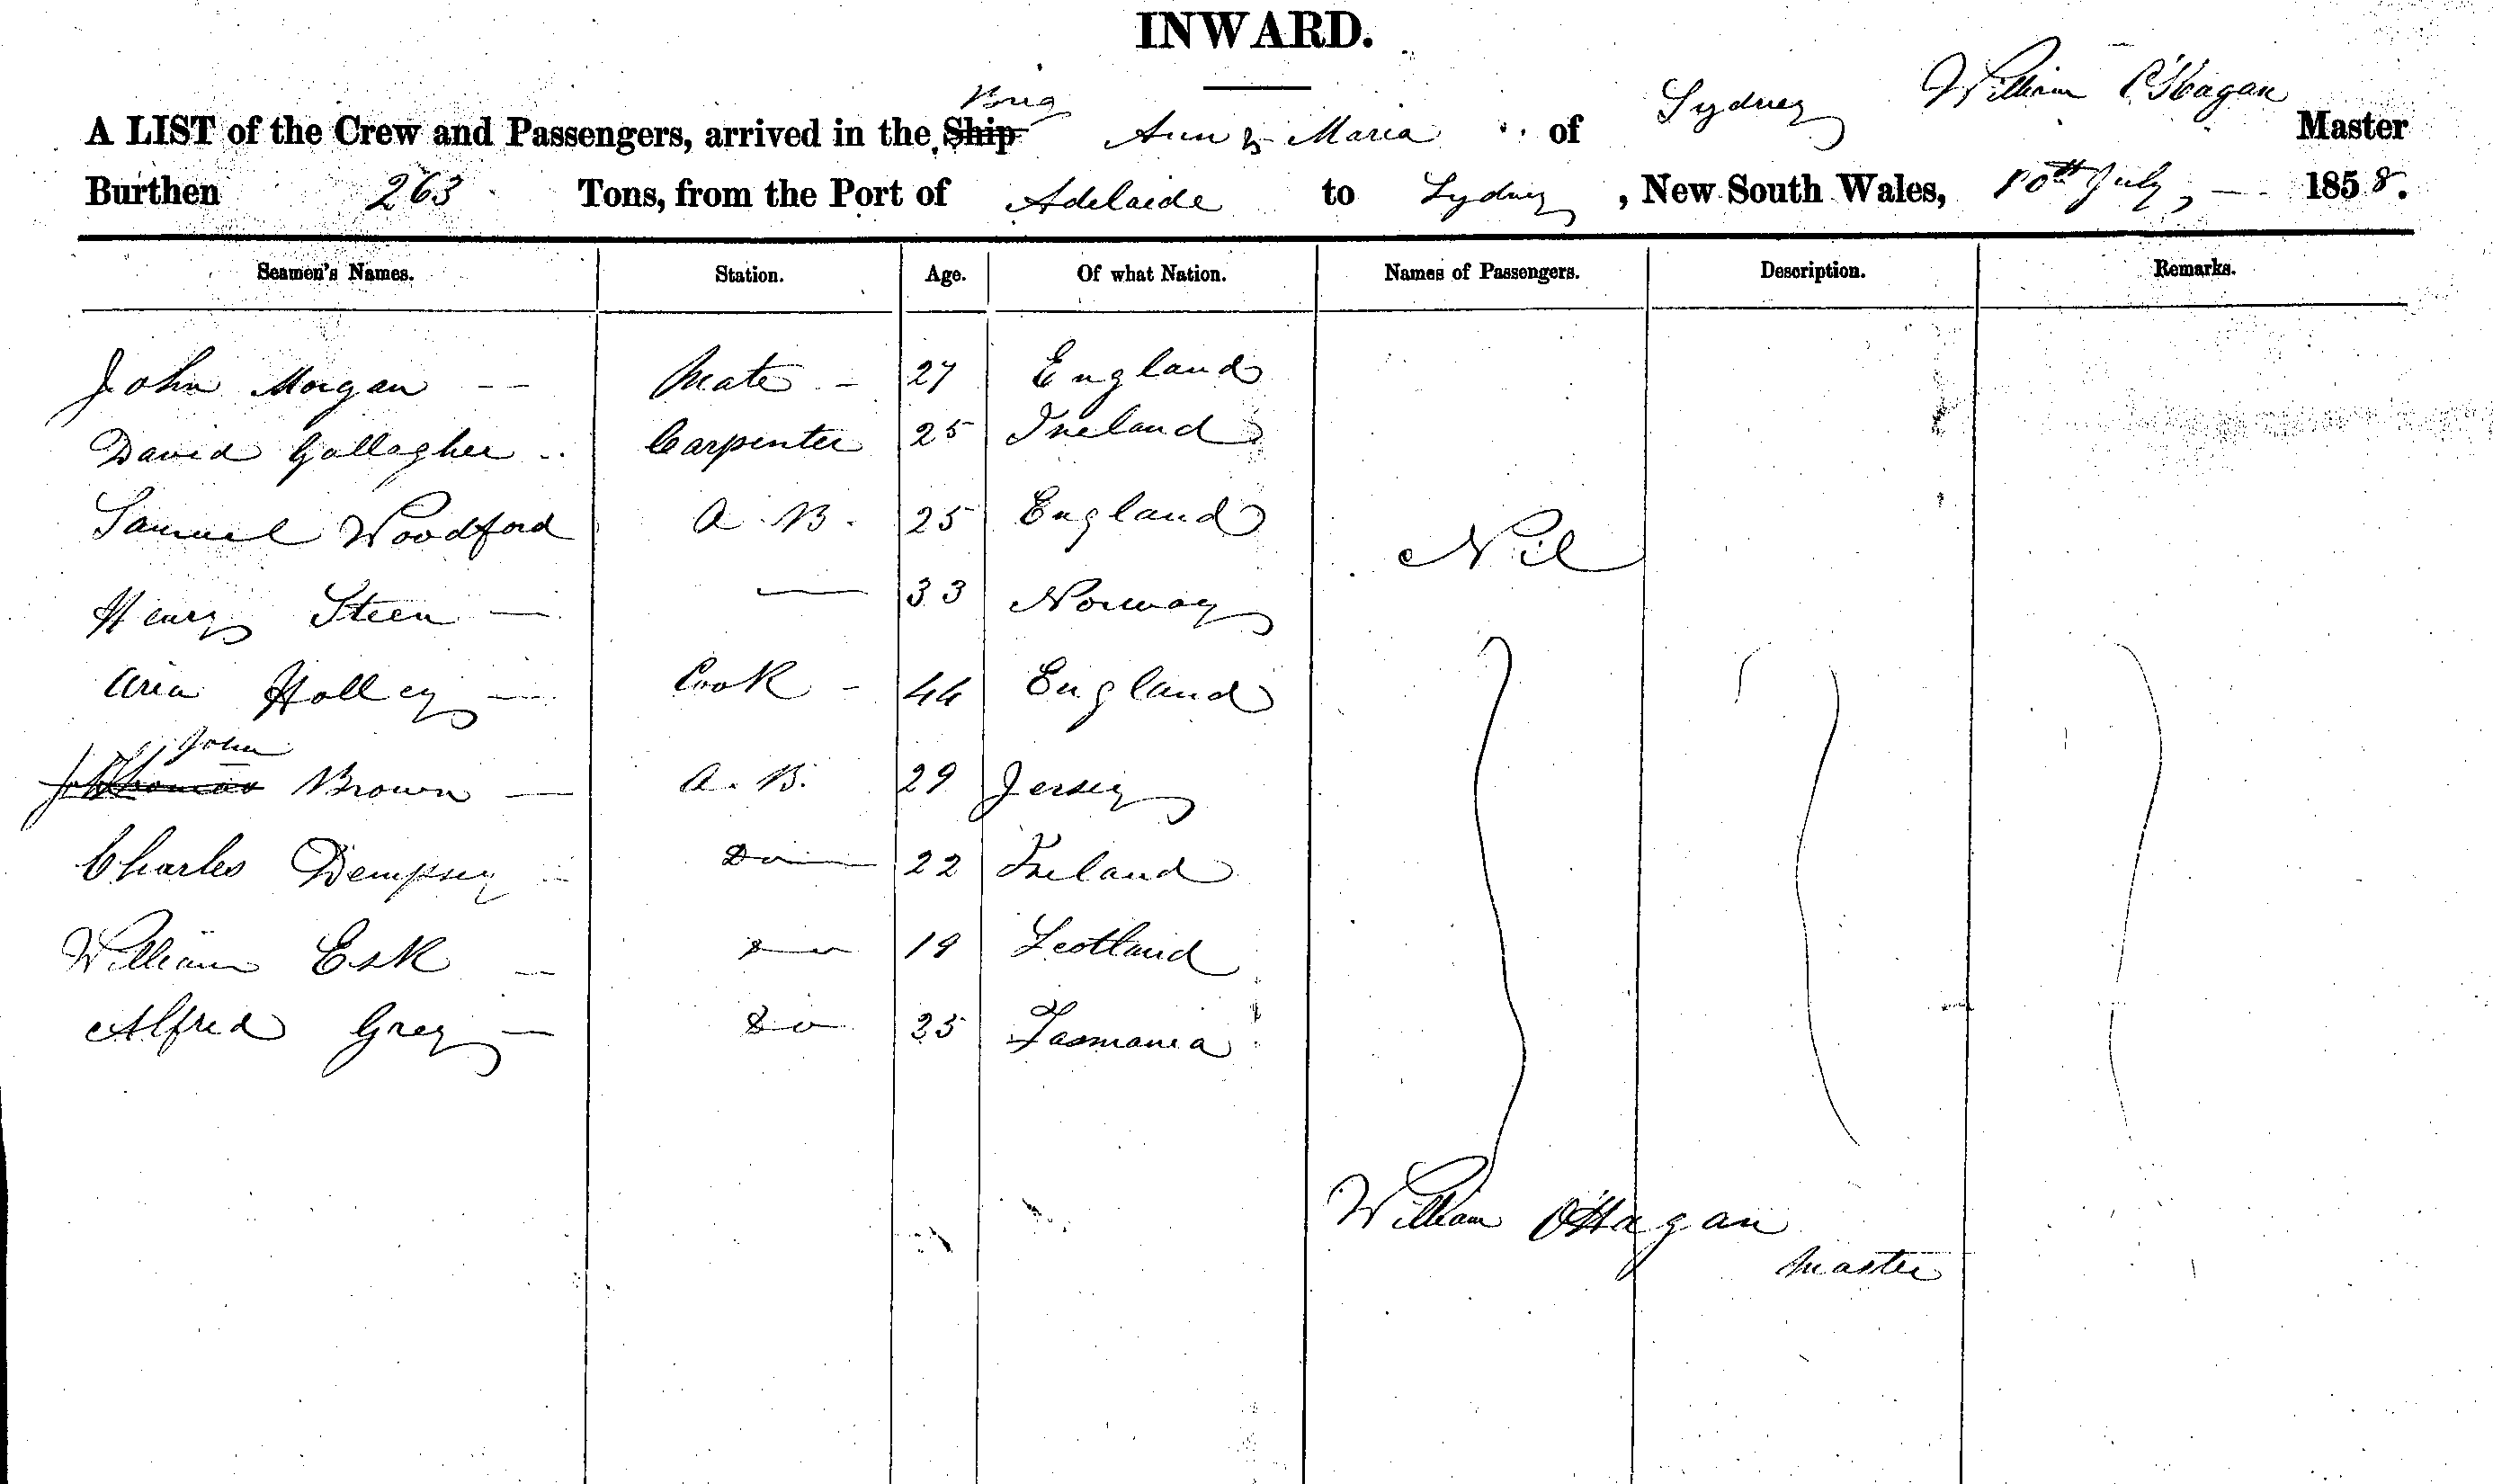 INWARD.
Brig
A LIST of the Crew and Passengers, arrived in the Ship Ann & Maria of Sydney William O'Hagan Master
Burthen 263 Tons, from the Port of Adelaide to Sydney, New South Wales, 10th July, — 1858.
Seamen's Names. Station. Age. Of what Nation. Names of Passengers. Description. Remarks.
John Morgan -- Mate - 27 England
David Gallagher .. Carpenter 25 Ireland
Samuel Woodford A.B. 25 England
Nil
Henry Steen — — 33 Norway
Holley — Cook - 44 England
John
Thomas Brown — A.B. 29 Jersey
Charles Dempsey -- Do — 22 Ireland
William Esk -- Do 19 Scotland
Alfred Grey — Do 25 Tasmania
William O'Hagan
Master